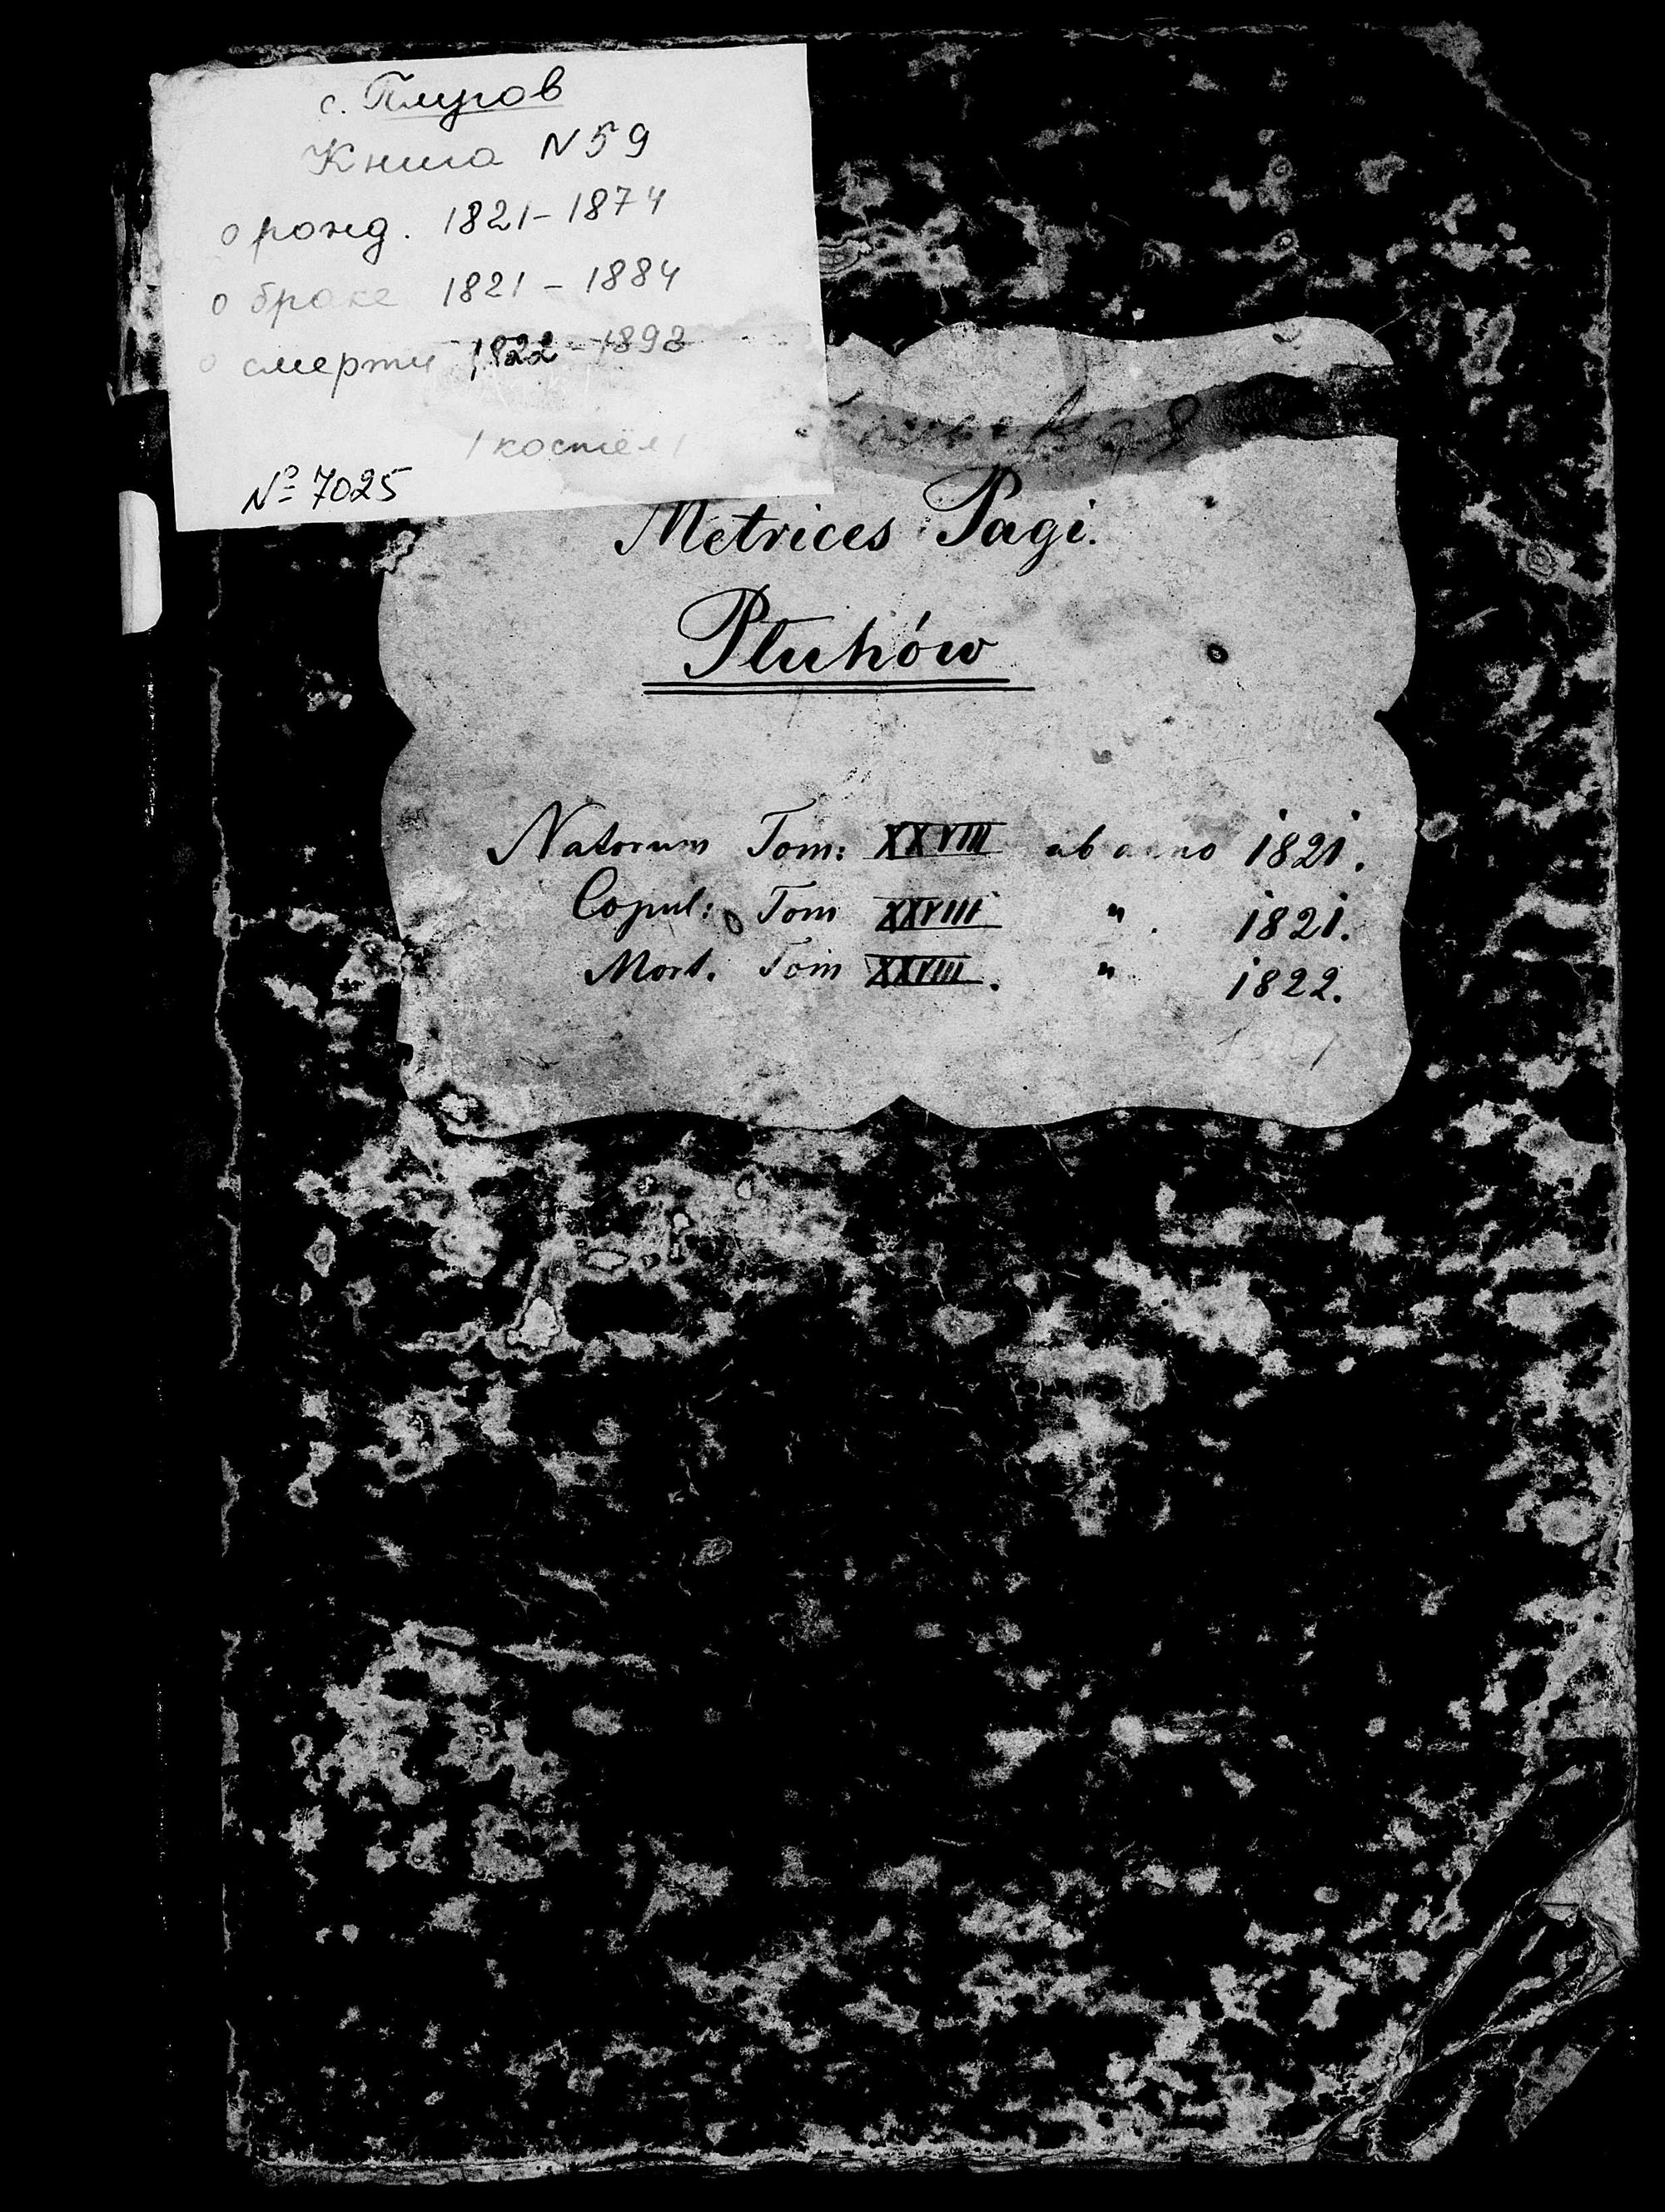 с. Плугов
Книга N59
о рожд. 1821-1874
о браке 1821-1884
о смерти 1822-1893
/костёл/
№ 7025
Metrices Pagi.
Płuhów
Natorum Tom: XXVIII ab anno 1821.
Copul: Tom XXVIII " 1821.
Mort. Tom XXVIII. " 1822.